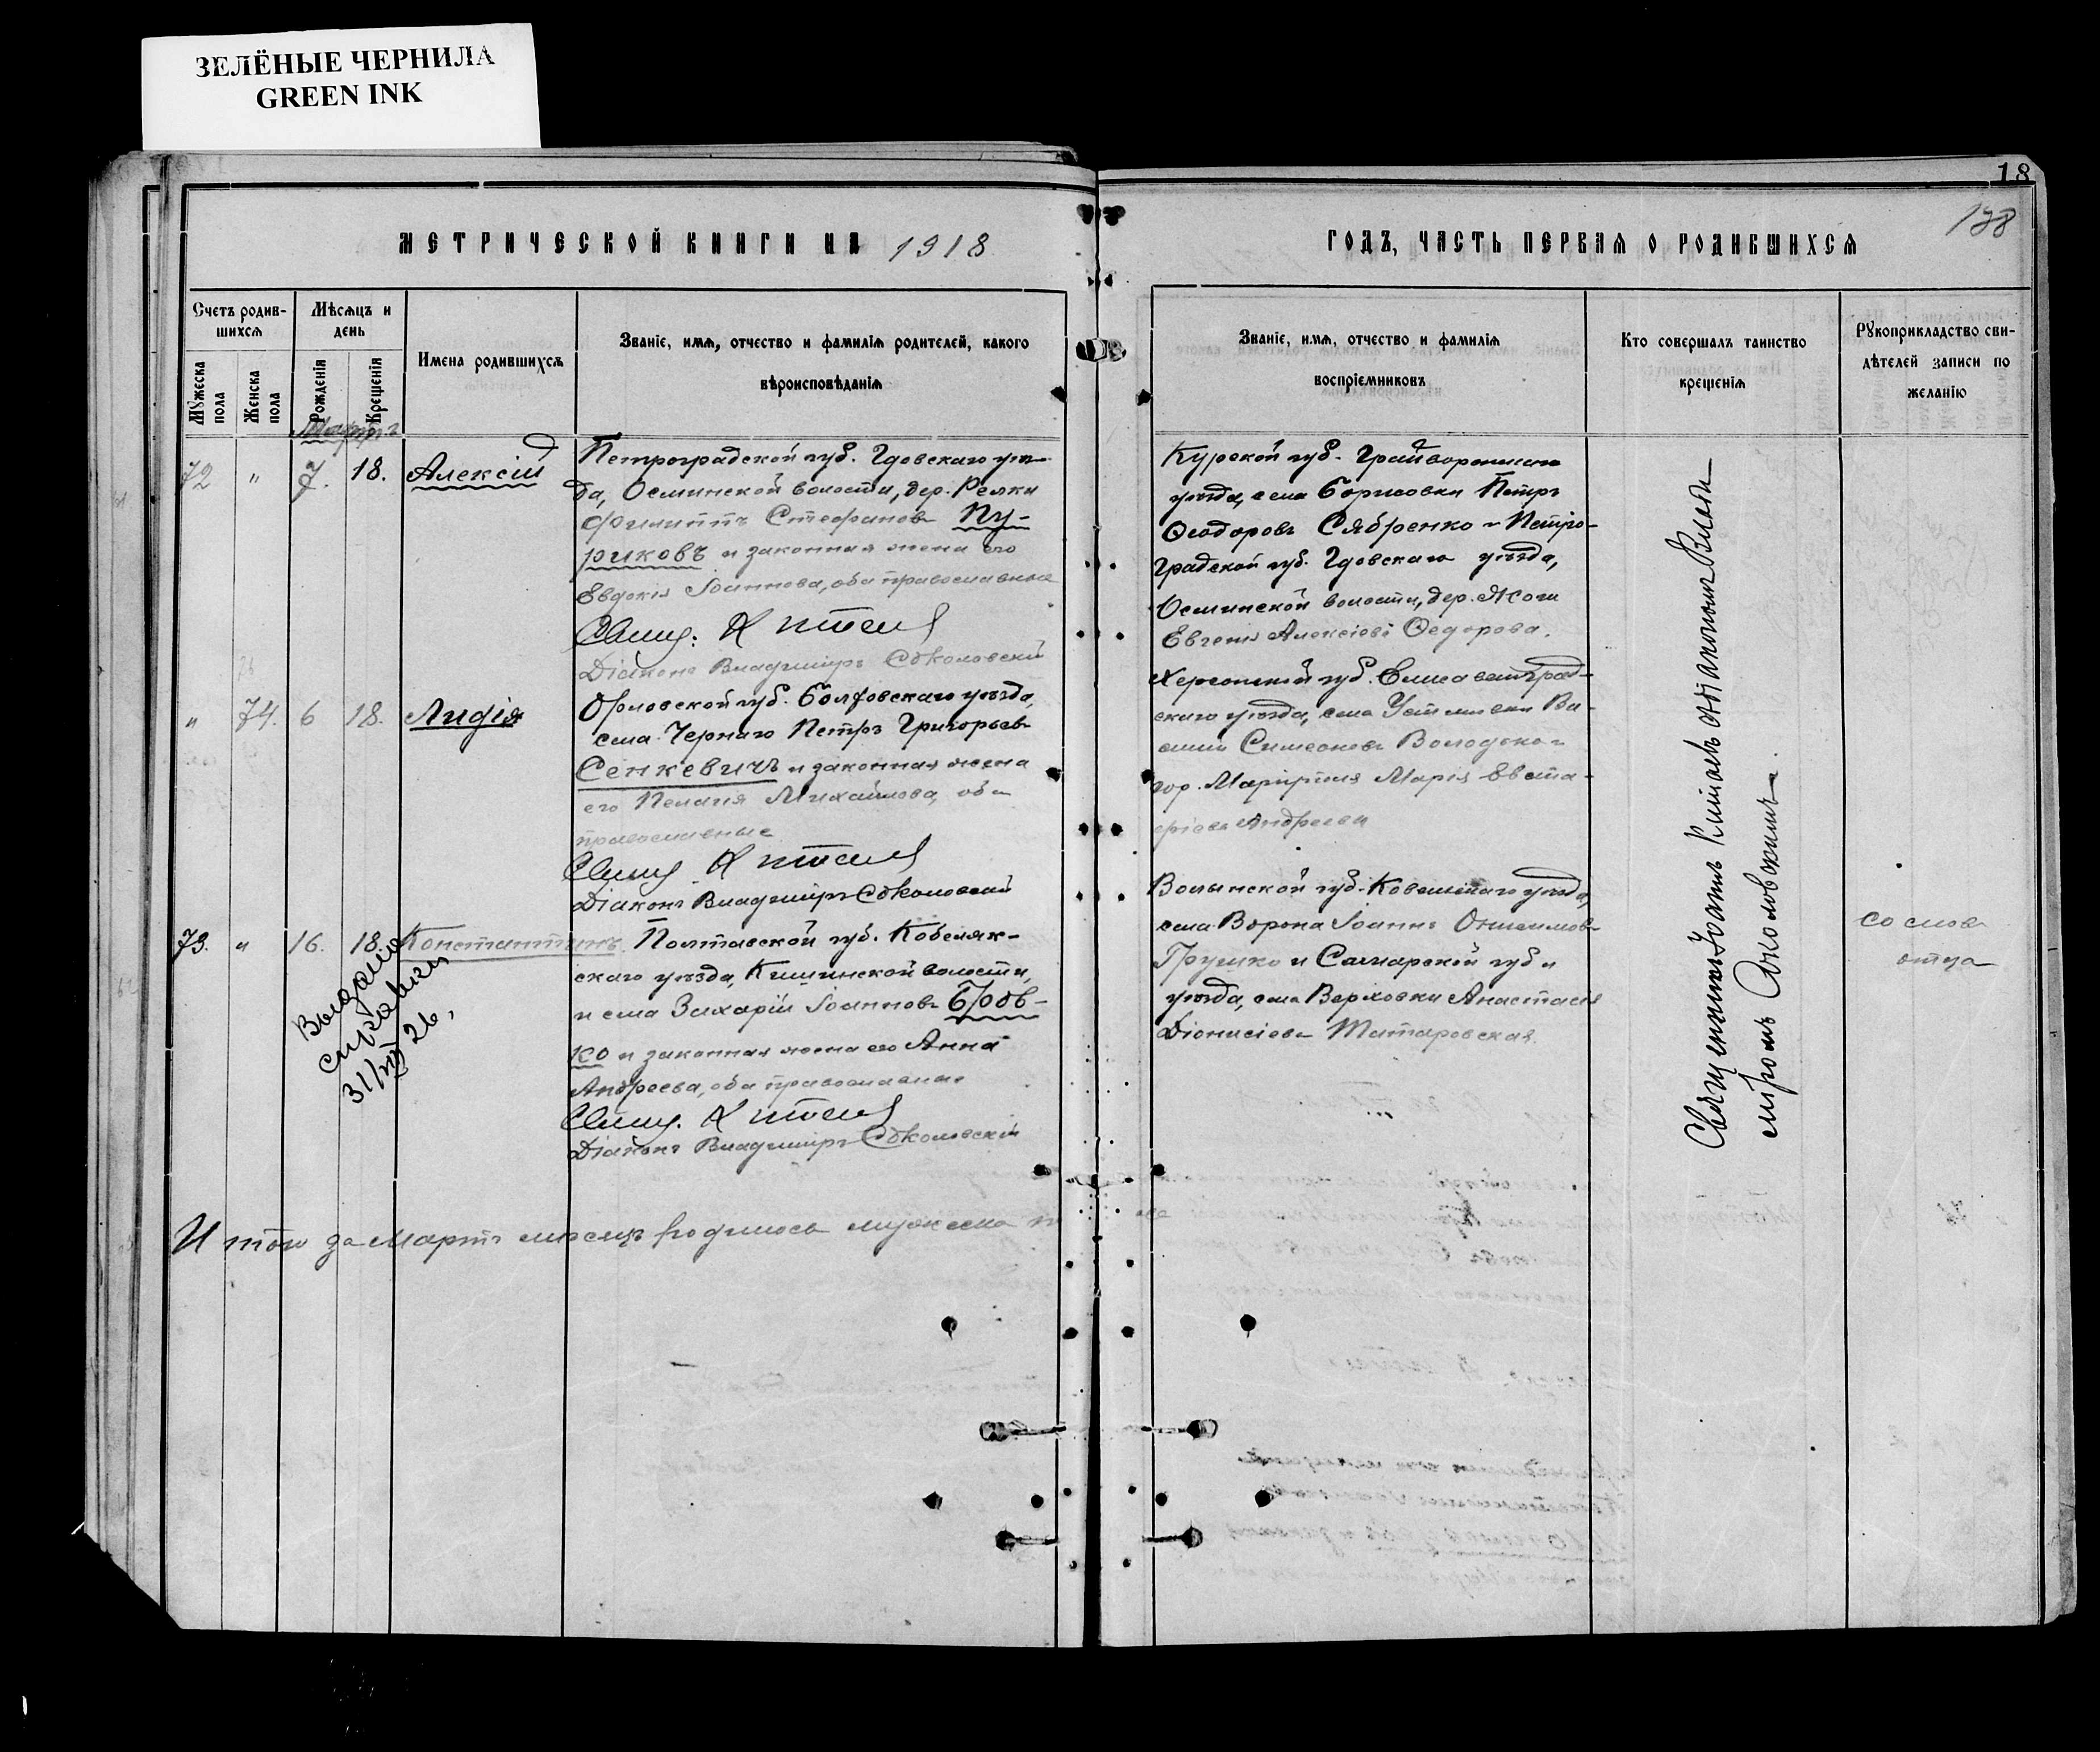 ЗЕЛЁНЫЕ ЧЕРНИЛА
GREEN INK
18
138
МЕТРИЧЕСКОЙ КНИГИ НА 1918
ГОДЪ, ЧАСТЬ ПЕРВАЯ О РОДИВШИХСЯ
Счетъ родив-
шихся
Мужеска
пола
Женска
пола
Мѣсяцъ и
день
Рожденія
Крещенія
Имена родившихся
Званіе, имя, отчество и фамилія родителей, какого
вѣроисповѣданія
Званіе, имя, отчество и фамилія
воспріемниковъ
Кто совершалъ таинство
крещенія
Рукоприкладство сви-
дѣтелей записи по
желанію
Мартъ
72 " 7. 18. Алексій
Петроградской губ. Гдовскаго уѣз-
да, Осьминской волости, дер. Релки
Филиппъ Стефановъ Пу-
риковъ и законная жена его
Евдокія Іоаннова, оба православные
Свящ. К
Діаконъ Владиміръ Соколовскій
Курской губ. Грайворонскаго
уѣзда, села Борисовки Петръ
Ѳеодоровъ Сябренко и Петро-
градской губ. Гдовскаго уѣзда,
Осьминской волости, дер.
Евгенія Алексіева Ѳедорова.
" 74. 6 18. Лидія
Орловской губ. Болховскаго уѣзда,
села Чернаго Петръ Григорьевъ
Сенкевичъ и законная жена
его Пелагія Михайлова, оба
православные
Свящ. К
Діаконъ Владиміръ Соколовскій
Херсонской губ. Елисаветград-
скаго уѣзда, села Ва-
силій Симеоновъ
гор. Марія Евста-
фіева Андреева
73. " 16. 18. Константинъ.
Полтавской губ. Кобеляк-
скаго уѣзда, волости,
и села Захарій Іоанновъ Бров-
ко и законная жена его Анна
Андреева, оба православные
Свящ. К
Діаконъ Владиміръ Соколовскій
Волынской губ. Ковельскаго уѣзда,
села Ворона Іоаннъ Онисимовъ
Грушко и Самарской губ. и
уѣзда, села Верховки Анастасія
Діонисіева Татаровская.
Выдано
справки
31/VII 26.
Священникъ Іоаннъ съ діакономъ Влади-
міромъ Соколовскимъ.
со словъ
отца
Итого за Мартъ мѣсяцъ родилось мужеска